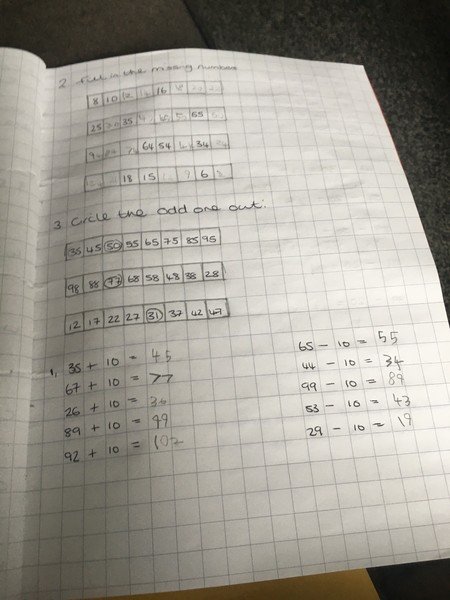 2 Fill in the missing numbers
8 10 12 14 16 18 20 22
25 30 35 65
9 64 54 34
18 15 9 6
3. Circle the odd one out.
35 45 50 55 65 75 85 95
98 88 77 68 58 48 38 28
12 17 22 27 31 37 42 47
1, 35 + 10 = 45
67 + 10 = 77
26 + 10 = 36
89 + 10 = 99
92 + 10 = 102
65 - 10 = 55
44 - 10 = 34
99 - 10 = 89
53 - 10 = 43
29 - 10 = 19